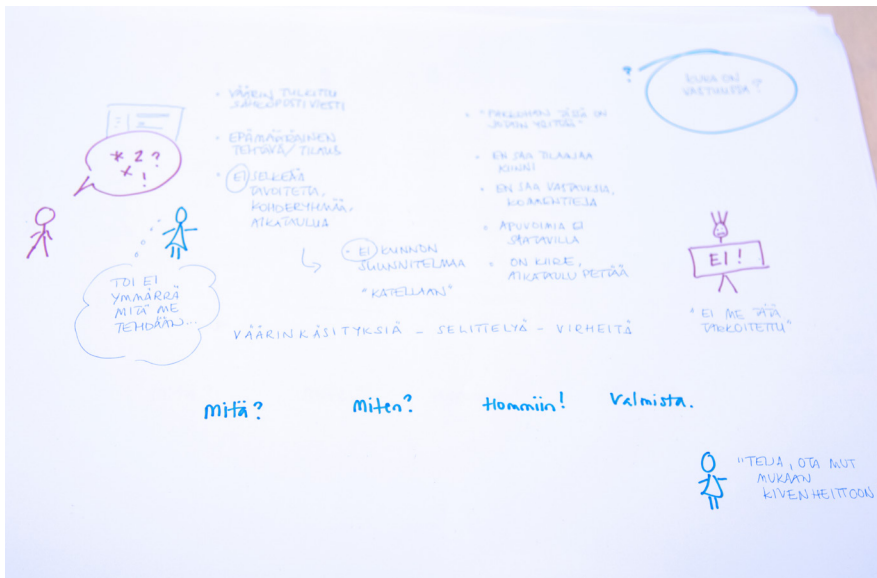 * 2 ?
x !
TOI EI
YMMÄRRÄ
MITÄ ME
TEHDÄÄN...
• VÄÄRIN TULKITTU
SÄHKÖPOSTIVIESTI
• EPÄMÄÄRÄINEN
TEHTÄVÄ/TILAUS
• EI SELKEÄÄ
TAVOITETTA,
KOHDERYHMÄÄ,
AIKATAULUA
• EI KUNNON
SUUNNITELMAA
"KATELLAAN"
• " TÄSSÄ ON
JODAIN YRITTÄÄ"
• EN SAA TILAAJAA
KIINNI
• EN SAA VASTAUKSIA,
KOMMENTTEJA
• APUVOIMIA EI
SAATAVILLA
• ON KIIRE,
AIKATAULU PETTÄÄ
?
KUKA ON
VASTUUSSA?
EI!
"EI ME TÄTÄ
TARKOITETTU"
VÄÄRINKÄSITYKSIÄ - SELITTELYÄ - VIRHEITÄ
Mitä?
Miten?
Hommiin!
Valmista.
"TEIJA, OTA MUT
MUKAAN
KIVENHEITTOON